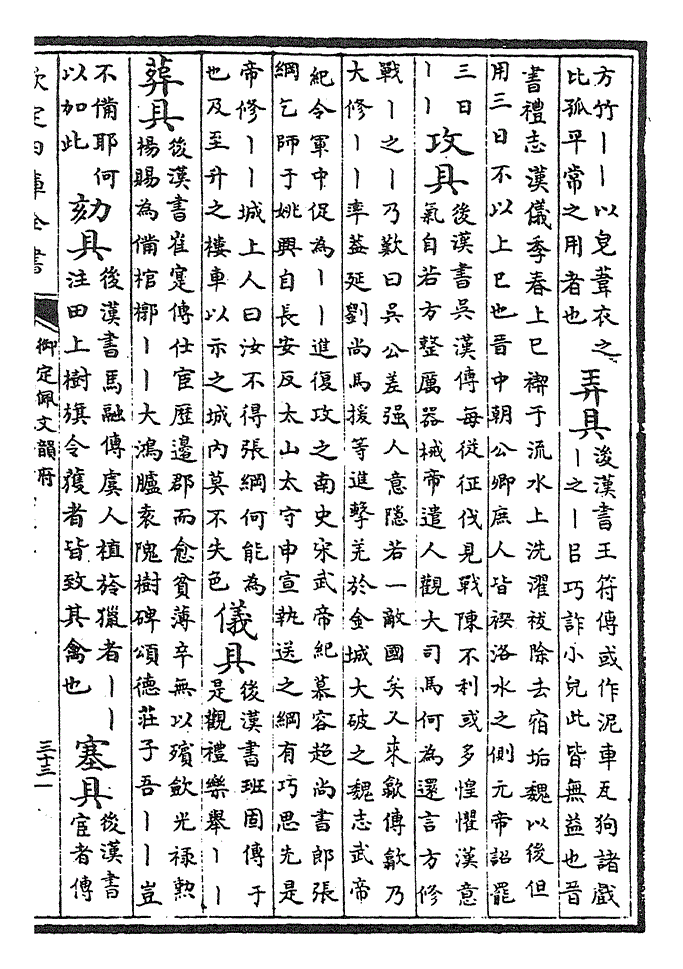 方竹丨丨以皂葦衣之
比孤平常之用者也
弄具
後漢書王符傳或作泥車瓦狗諸戲
丨之丨㠯巧詐小兒此皆無益也晉
書禮志漢儀季春上巳禊于流水上洗濯祓除去宿垢魏以後但
用三日不以上巳也晉中朝公卿庶人皆禊洛水之側元帝詔罷
三日
丨丨
攻具
後漢書吳漢傳每從征伐見戰陳不利或多惶懼漢意
氣自若方整厲器械帝遣人觀大司馬何為還言方修
戰丨之丨乃歎曰吳公差强人意隠若一敵國矣又來歙傳歙乃
大修丨丨率葢延劉尚馬援等進擊羌於金城大破之魏志武帝
紀令軍中促為丨丨進復攻之南史宋武帝紀慕容超尚書郎張
綱乞師于姚興自長安反太山太守申宣執送之綱有巧思先是
帝修丨丨城上人曰汝不得張綱何能為
也及至升之樓車以示之城内莫不失色
儀具
後漢書班固傳于
是觀禮樂舉丨丨
葬具
後漢書崔寔傳仕宦歴邊郡而愈貧薄卒無以殯歛光禄勲
楊賜為備棺槨丨丨大鴻臚袁隗樹碑頌德莊子吾丨丨豈
不備耶何
以加此
劾具
後漢書馬融傳虞人植旍獵者丨丨
注田上樹旗令獲者皆致其禽也
塞具
後漢書
宦者傳
欽定四庫全書
御定佩文韻府
三十三